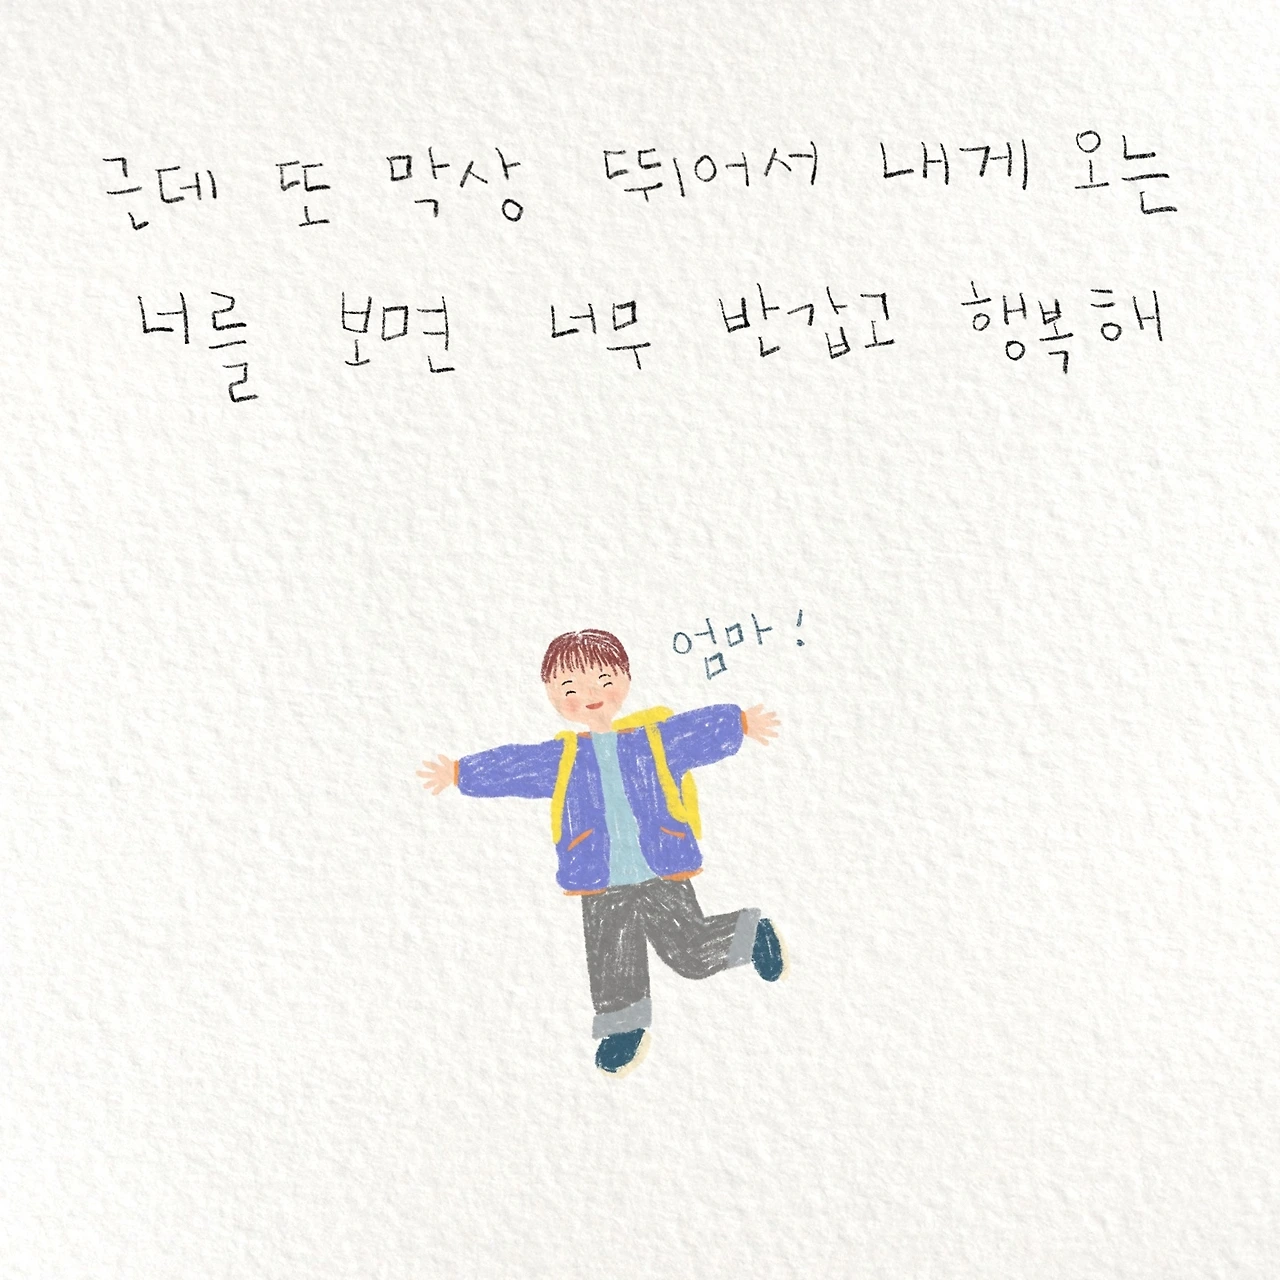 근데 또 막상 뚜어서 내게 오는
너를 보면 너무 반갑고 행복해
엄마!